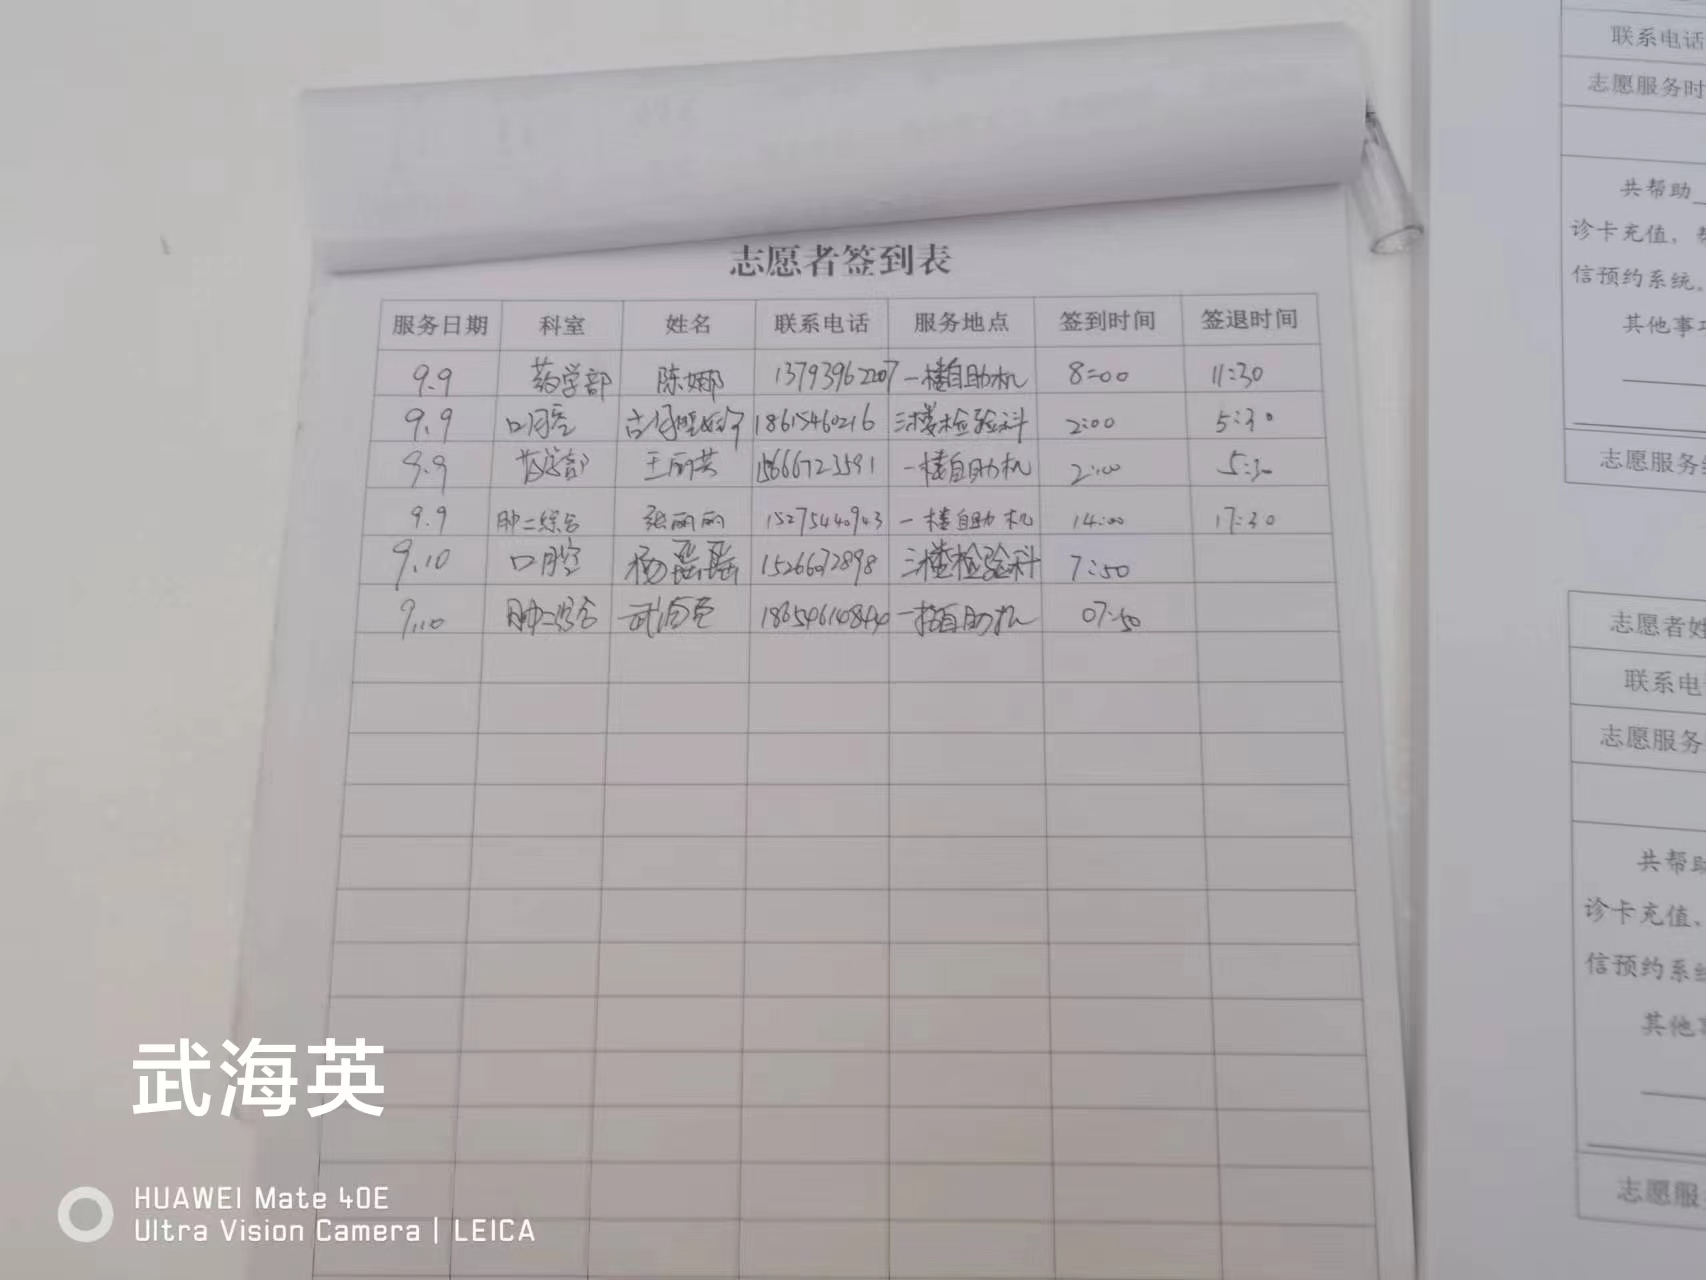 志愿者签到表
服务日期 科室 姓名 联系电话 服务地点 签到时间 签退时间
9.9 药学部 陈娜 13793962207 一楼自助机 8:00 11:30
9.9 口腔 18615460216 三楼检验科 2:00 5:30
9.9 药学部 王丽英 15666723591 一楼自助机 2:00 5:30
9.9 肿二综合 张丽丽 15275440943 一楼自助机 14:00 17:30
9.10 口腔 杨磊磊 15266072898 三楼检验科 7:50
9.10 肿二综合 武海英 一楼自助机 07:50
联系电话
志愿服务时
共帮助
诊卡充值，帮
信预约系统。
其他事项
志愿服务
志愿者姓
联系电
志愿服务
共帮助
诊卡充值、
信预约系统
其他事
志愿服
武海英
HUAWEI Mate 40E
Ultra Vision Camera | LEICA